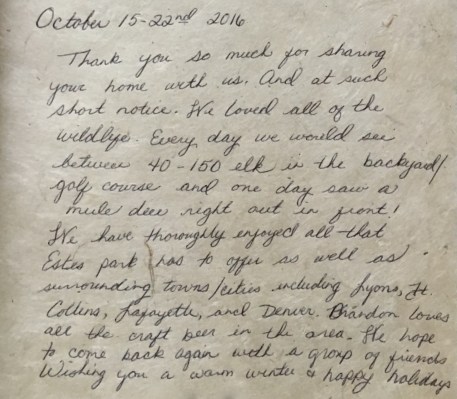 October 15-22nd 2016
Thank you so much for sharing
your home with us. And at such
short notice. We loved all of the
wildlife. Every day we would see
between 40-150 elk in the backyard/
golf course and one day saw a
mule deer right out in front!
We have thoroughly enjoyed all that
Estes park has to offer as well as
surrounding towns/cities including Lyons, Ft.
Collins, Lafayette, and Denver. Brandon loves
all the craft beer in the area. We hope
to come back again with a group of friends
Wishing you a warm winter & happy holidays